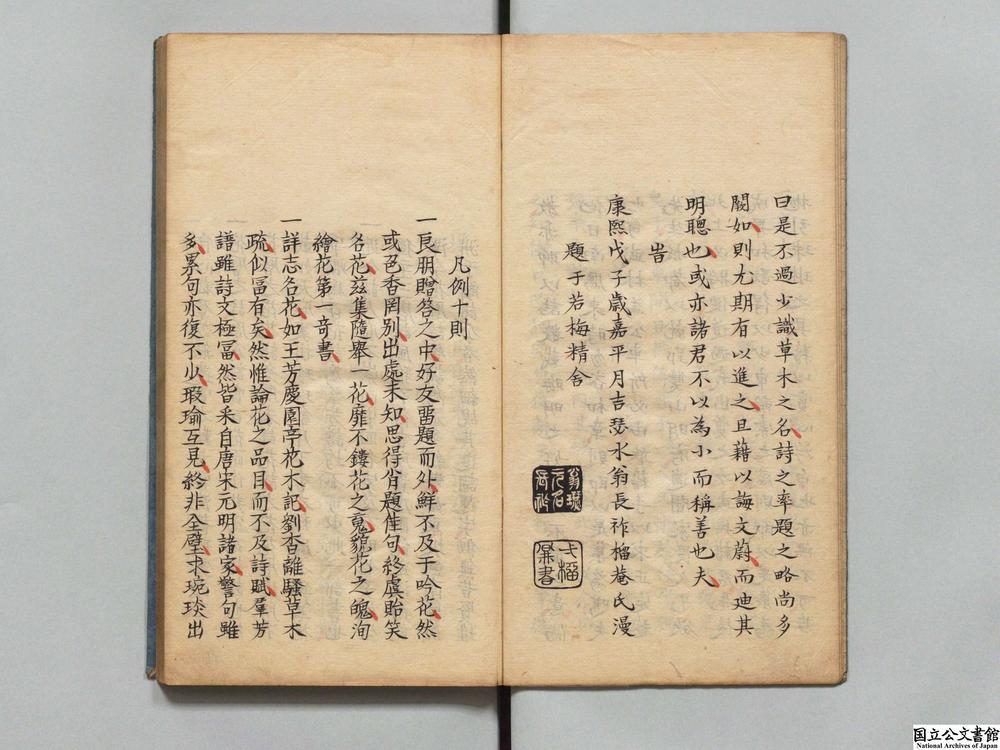 曰是不過少識草木之名詩之率題之略尚多
闕如則尤期有以進之且藉以誨文蔚而迪其
明聰也或亦諸君不以為小而稱善也夫
旹
康熙戊子歳嘉平月吉瑟水翁長祚榴菴氏漫
題于若梅精舍
凡例十則
一良朋贈答之中好友畱題而外鮮不及于吟花然
或色香罔别出處未知思得肖題佳句終虞貽笑
名花兹集隨舉一花靡不鏤花之䰟貌花之魄洵
繪花第一竒書
一詳志名花如王芳慶園亭花木記劉杳離騷草木
疏似冨有矣然惟論花之品目而不及詩賦羣芳
譜雖詩文極冨然皆采自唐宋元明諸家警句雖
多累句亦復不少瑕瑜互見終非全璧求琬琰出
国立公文書館
National Archives of Japan